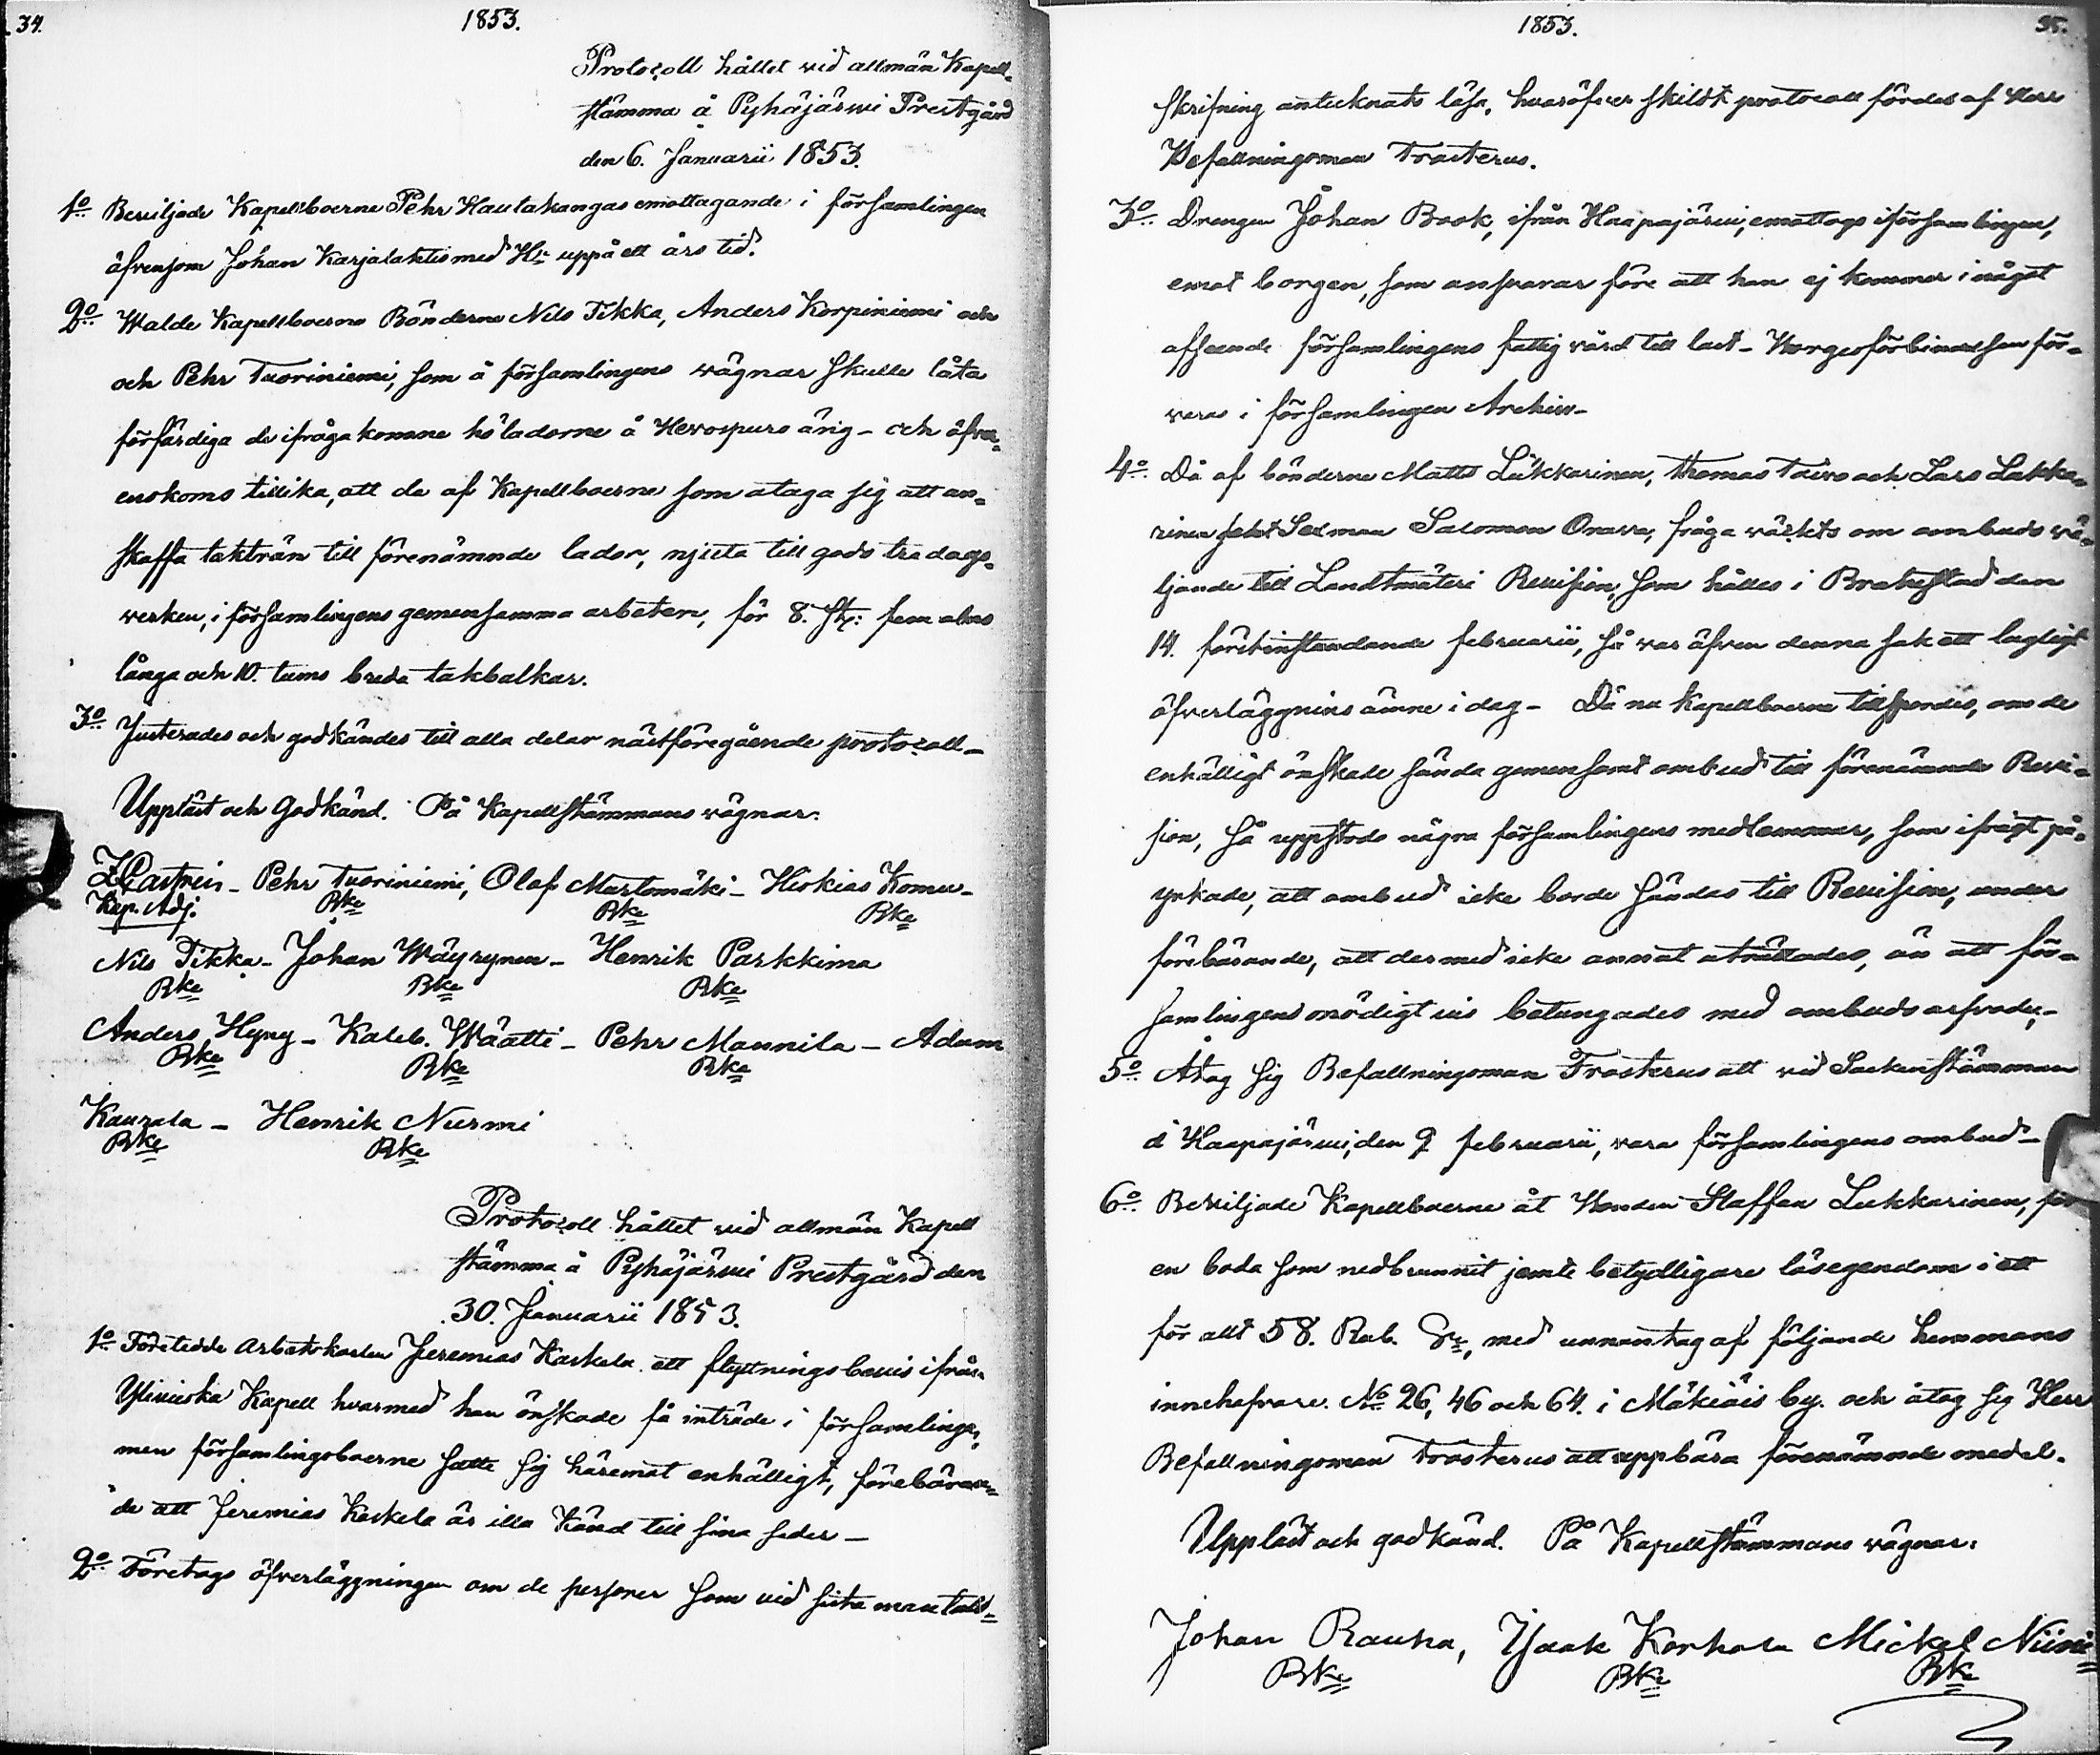 34.
1853.
Protocoll hållet vid allmän Kapell-
stämma å Pyhäjärwi Prestgård
den 6. Januarii 1853.
1o Beviljade Kapellboerne Pehr Hautakangas emottagande i församlingen
äfvensom Johan Karjalaktis med Hu uppå ett års tid.
2o Walde Kapellboerne Bönderne Nils Tikka, Anders Korpiniemi och
och Pehr Tuoriniemi, som å församlingens vägnar skulle låta
förfärdiga de ifrågakomne höladorne å Hevospuro äng - och öfver-
enskoms tillika, att de af Kapellboerne som ataga sig att an-
skaffa takträn till förenämnde lador, njuta till godo tre dags-
verken, i församlingens gemensamma arbeten, för 8. st: fem alns
långa och 10. tums breda takbalkar.
3o Justerades och godkändes till alla delar nästföregående protocoll -
Uppläst och Godkänd. På Kapellstämmans vägnar:
Z Castrén - Pehr Tuoriniemi, Olaf Murtomäki - Hiskias Komu -
Kap. Adj. Bke Bke Bke
Nils Tikka - Johan Wäyrynen - Henrik Parkkima
Bke Bke Bke
Anders Hyny - Kaleb. Wäätti - Pehr Mannila - Adam
Bke Bke Bke
Kaurala - Henrik Nurmi
Bke Bke
Protocoll hållet vid allmän Kapell
stämma å Pyhäjärwi Prestgård den
30. Januarii 1853.
1o Företedde Arbetskarlen Jeremias Kaskela ett flyttningsbevis ifrån
Ylivieska Kapell hvarmed han önskade få inträde i församlingen,
men församlingsboerne satte sig häremot enhälligt, förebäran-
de att Jeremias Kaskela är illa känd till sina seder -
2o Företogs öfverläggningen om de personer som vid sista mantals-
1853.
35.
skrifning antecknats lösa, hvaröfver skildt protocoll fördes af Herr
Befallningsman Frosterus.
3o Drengen Johan Book, ifrån Haapajärvi, emottogs i församlingen,
emot borgen, som ansvarar före att han ej kommer i något
afseende församlingens fattigvård till last - Borgesförbindelsen för-
varas i församlingens Archiv -
4o Då af bönderne Matts Lukkarinen, Thomas Taivo och Lars Lukka-
rinen samt Sexman Salomon Orava, fråga väckts om ombuds vä-
ljande till Landtmäteri Revision, som hålles i Brahestad den
14. förstinstundande februarii, så var äfven denna sak ett lagligt
öfverläggnins ämne i dag - Då nu Kapellboerne tillspordes, om de
enhälligt önskade sända gemensamt ombud till förenämnde Revi-
sion, så uppstodo några församlingens medlemmar, som ifrigt på-
yrkade, att ombud icke borde sändas till Revision, under
förebärande, att dermed icke annat uträttades, än att för-
samlingens onödigt vis betungades med ombuds arfvode, -
5o Åtog sig Befallningsman Frosterus att vid Sockenstämman
i Haapajärvi, den 9 februarii, vara församlingens ombud -
6o Beviljade Kapellboerne åt Bonden Staffan Lukkarinen, för
en boda som nedbrunnit jemte betydligare lösegendom i ett
för allt 58. Rub. Sr, med unnantag af följande hemmans
innehafvare. No 26, 46 och 64. i Mäkiäis by. och åtog sig Herr
Befallningsman Frosterus att uppbära förenämnde medel.
Uppläst och godkänd. På Kapellstämmans vägnar:
Johan Rauha, Isaak Korhola Mickel Niini
Bke Bke Bke